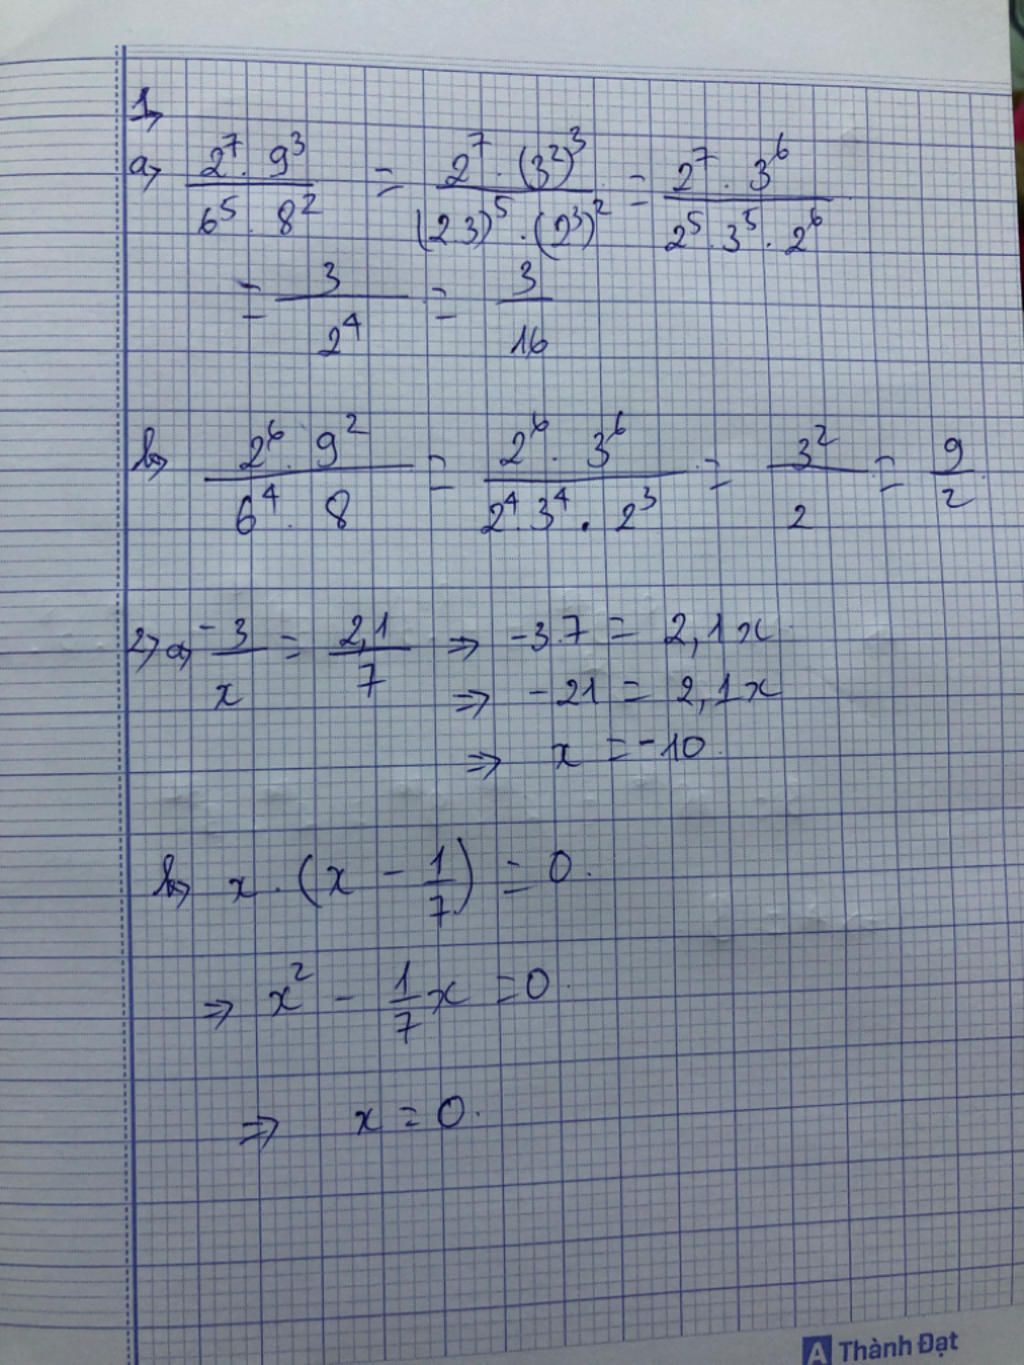 1,
a, 2^7 . 9^3 / 6^5 . 8^2 = 2^7 . (3^2)^3 / (2.3)^5 . (2^3)^2 = 2^7 . 3^6 / 2^5 . 3^5 . 2^6
= 3 / 2^4 = 3 / 16
b, 2^6 . 9^2 / 6^4 . 8 = 2^6 . 3^6 / 2^4 . 3^4 . 2^3 = 3^2 / 2 = 9 / 2
2, a, -3 / x = 2,1 / 7 => -3.7 = 2,1x
=> -21 = 2,1x
=> x = -10
b, x . (x - 1/7) = 0.
=> x^2 - 1/7 x = 0
=> x = 0.
A Thành Đạt